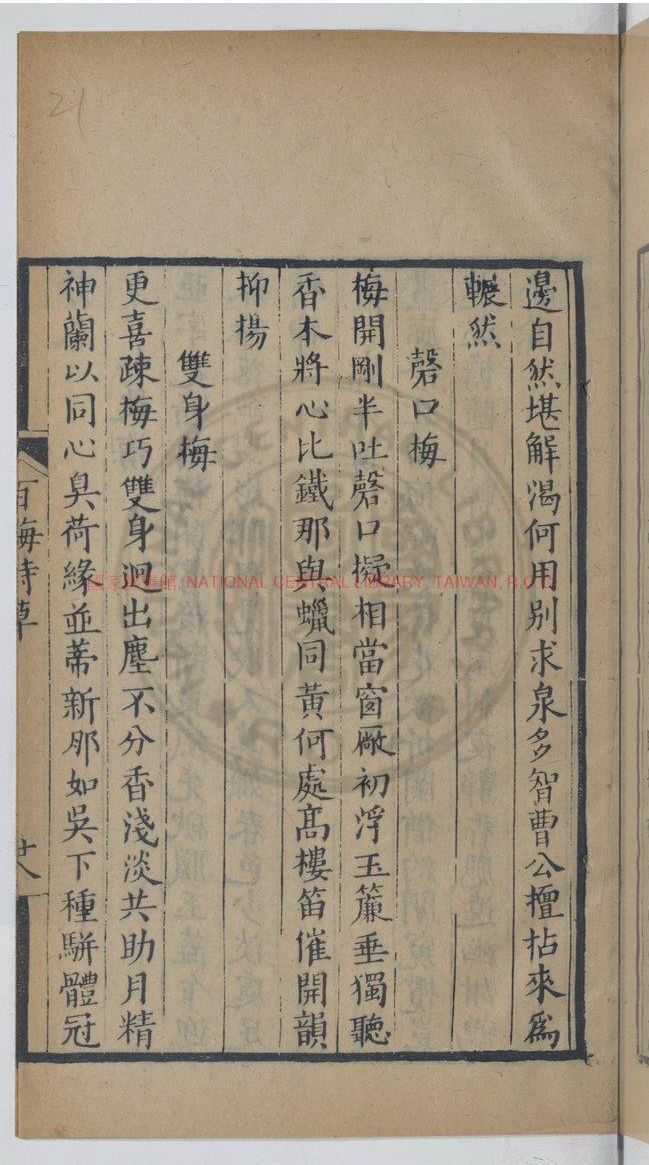 邊自然堪解渴何用别求泉多智曹公擅拈來為
囅然
磬口梅
梅開剛半吐磬口擬相當窗厰初浮玉簾垂獨聽
香本將心比鐵那與蠟同黃何處髙樓笛催開韻
抑揚
雙身梅
更喜疎梅巧雙身迥出塵不分香淺淡共助月精
神蘭以同心臭荷緣並蒂新那如吳下種駢體冠
百梅詩草
廿八
21
國家圖書館, NATIONAL CENTRAL LIBRARY, TAIWAN, R.O.C.